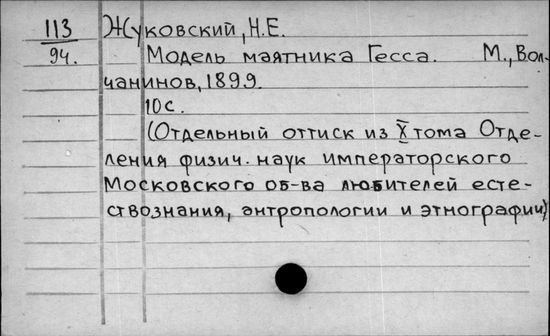 113 Жуковский, Н.Е.
94. Модель маятника Гесса. М., Вол-
чанинов, 1899.
10 с.
(Отдельный оттиск из X тома Отде-
ления физич. наук императорского
Московского об-ва любителей есте-
ствознания, антропологии и этнографии)